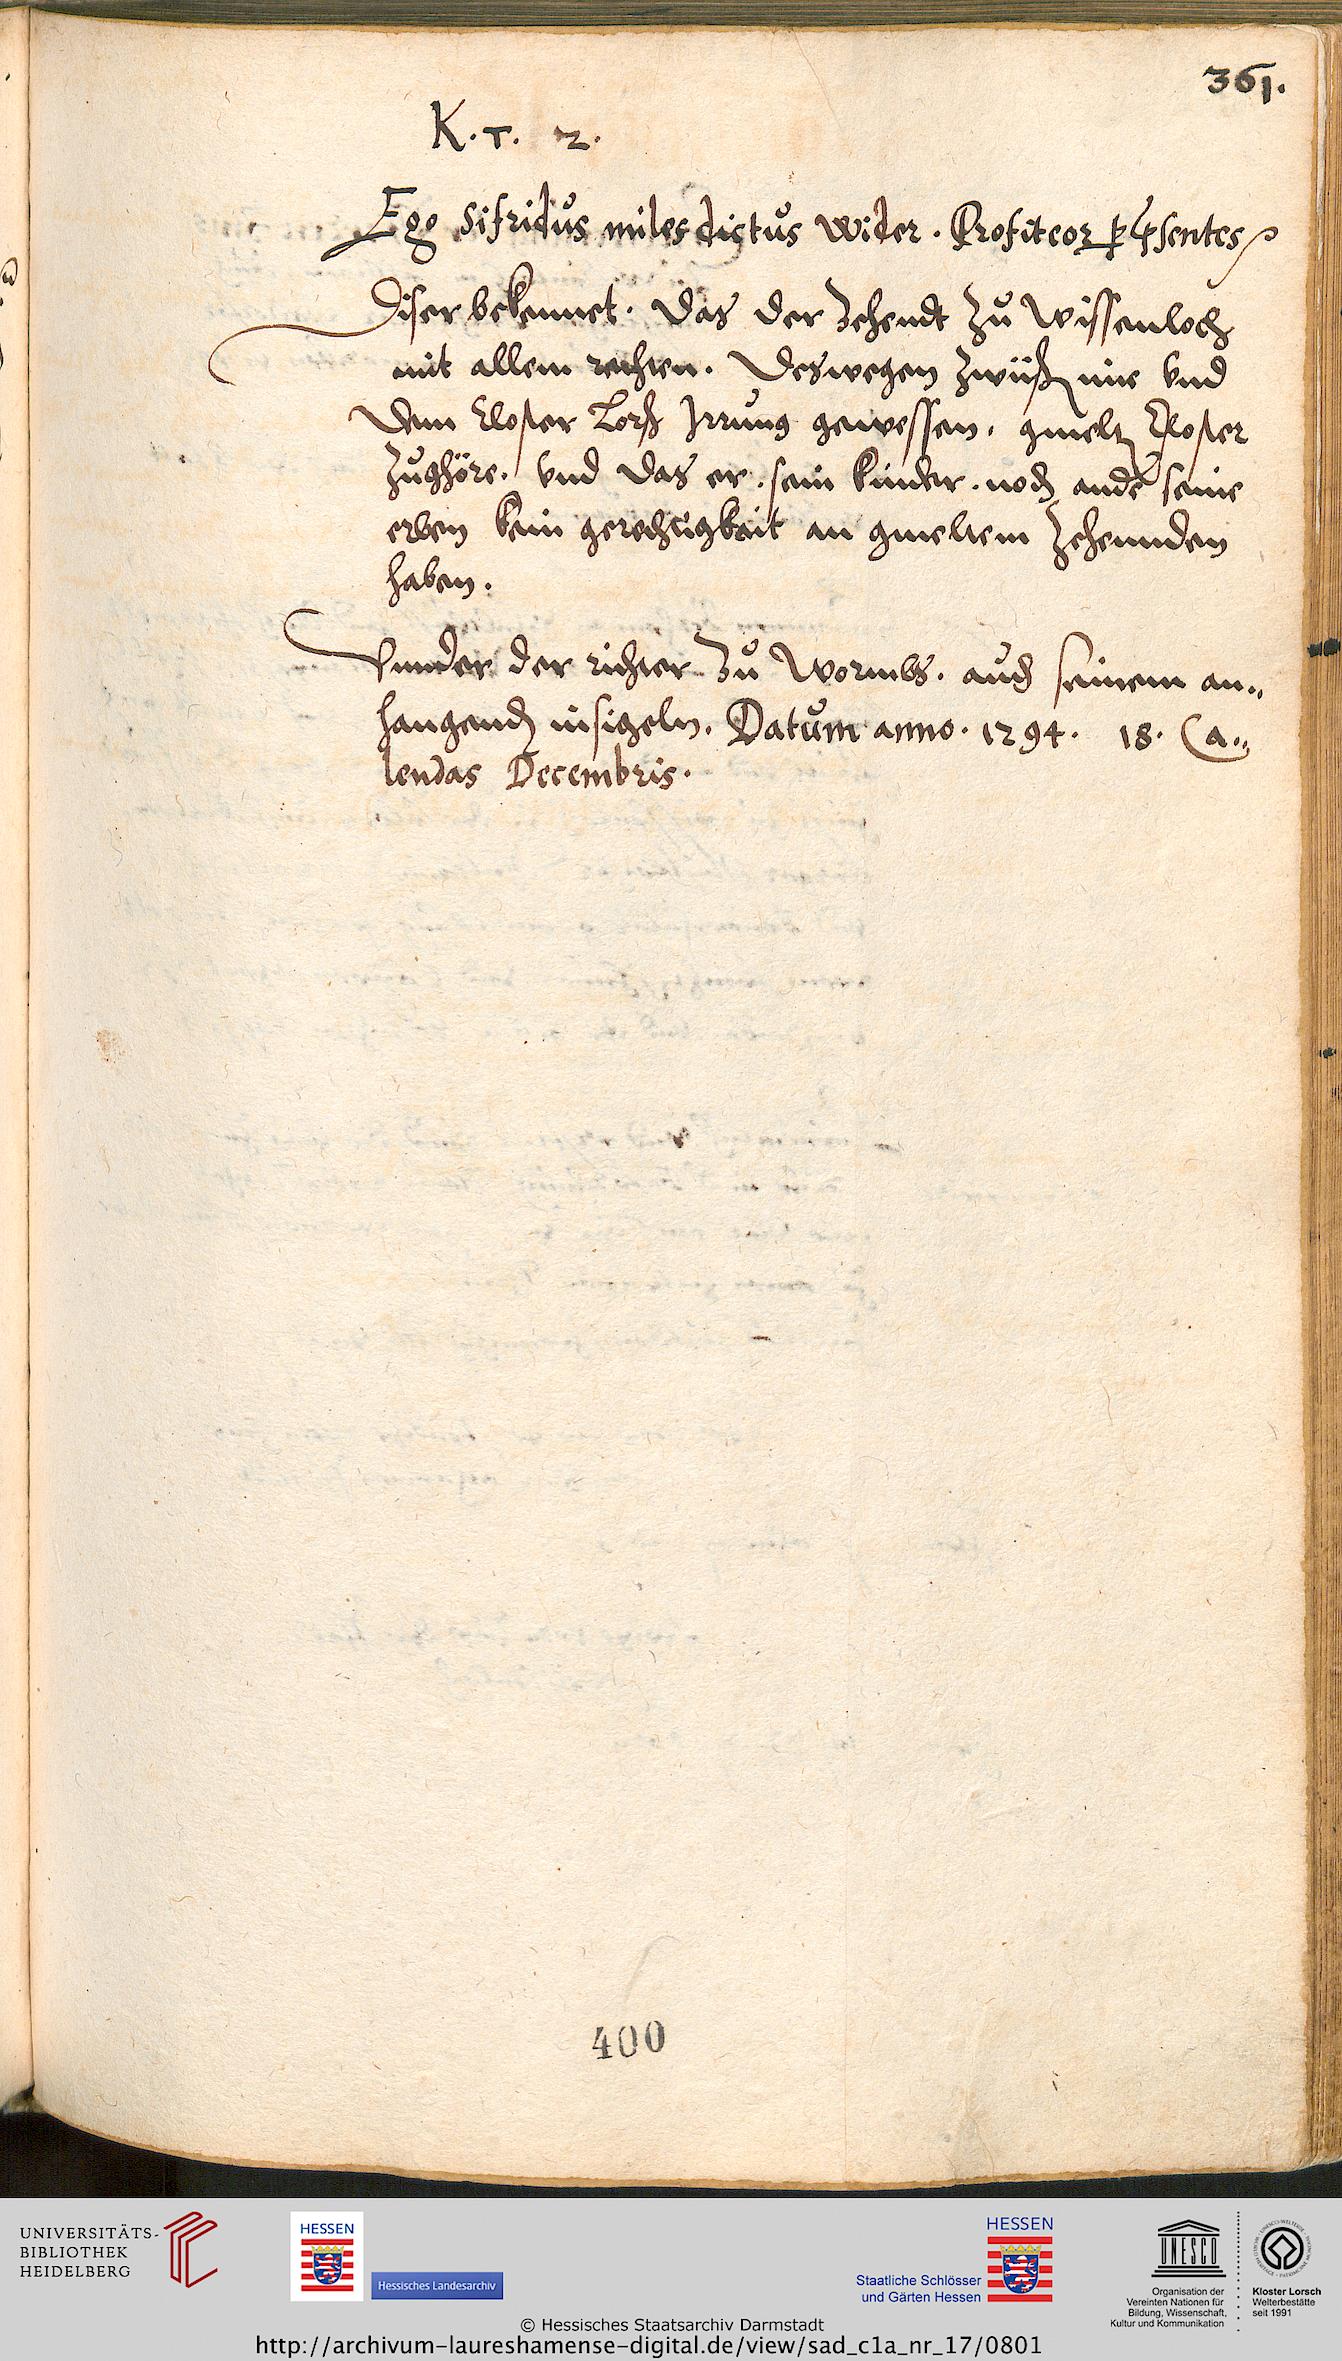 361.
K. T. 2.
Ego Sifridus miles dictus Wider. Profiteor p psentes
Diser bekennet. Das der Zehendt Zu Wissenloch
mit allem rechten. Deswegen zwüß ime vnd
dem Closter Lorß Irrung gewessen. gmelt Closter
Zughöre. vnd das er. sein kinder. noch andē seine
erben kein gerechtigkait an gmeltem Zehennden
haben.
Vnnder der richter Zu Wormbs. auch seinem an„
hangend insigeln. Datum anno. 1294. 18. Ca„
lendas Decembris.
400
UNIVERSITÄTS-
BIBLIOTHEK
HEIDELBERG
HESSEN
Hessisches Landesarchiv
HESSEN
Staatliche Schlösser
und Gärten Hessen
UNESCO
Organisation der
Vereinten Nationen für
Bildung, Wissenschaft,
Kultur und Kommunikation
Kloster Lorsch
Welterbestätte
seit 1991
© Hessisches Staatsarchiv Darmstadt
http://archivum-laureshamense-digital.de/view/sad_c1a_nr_17/0801